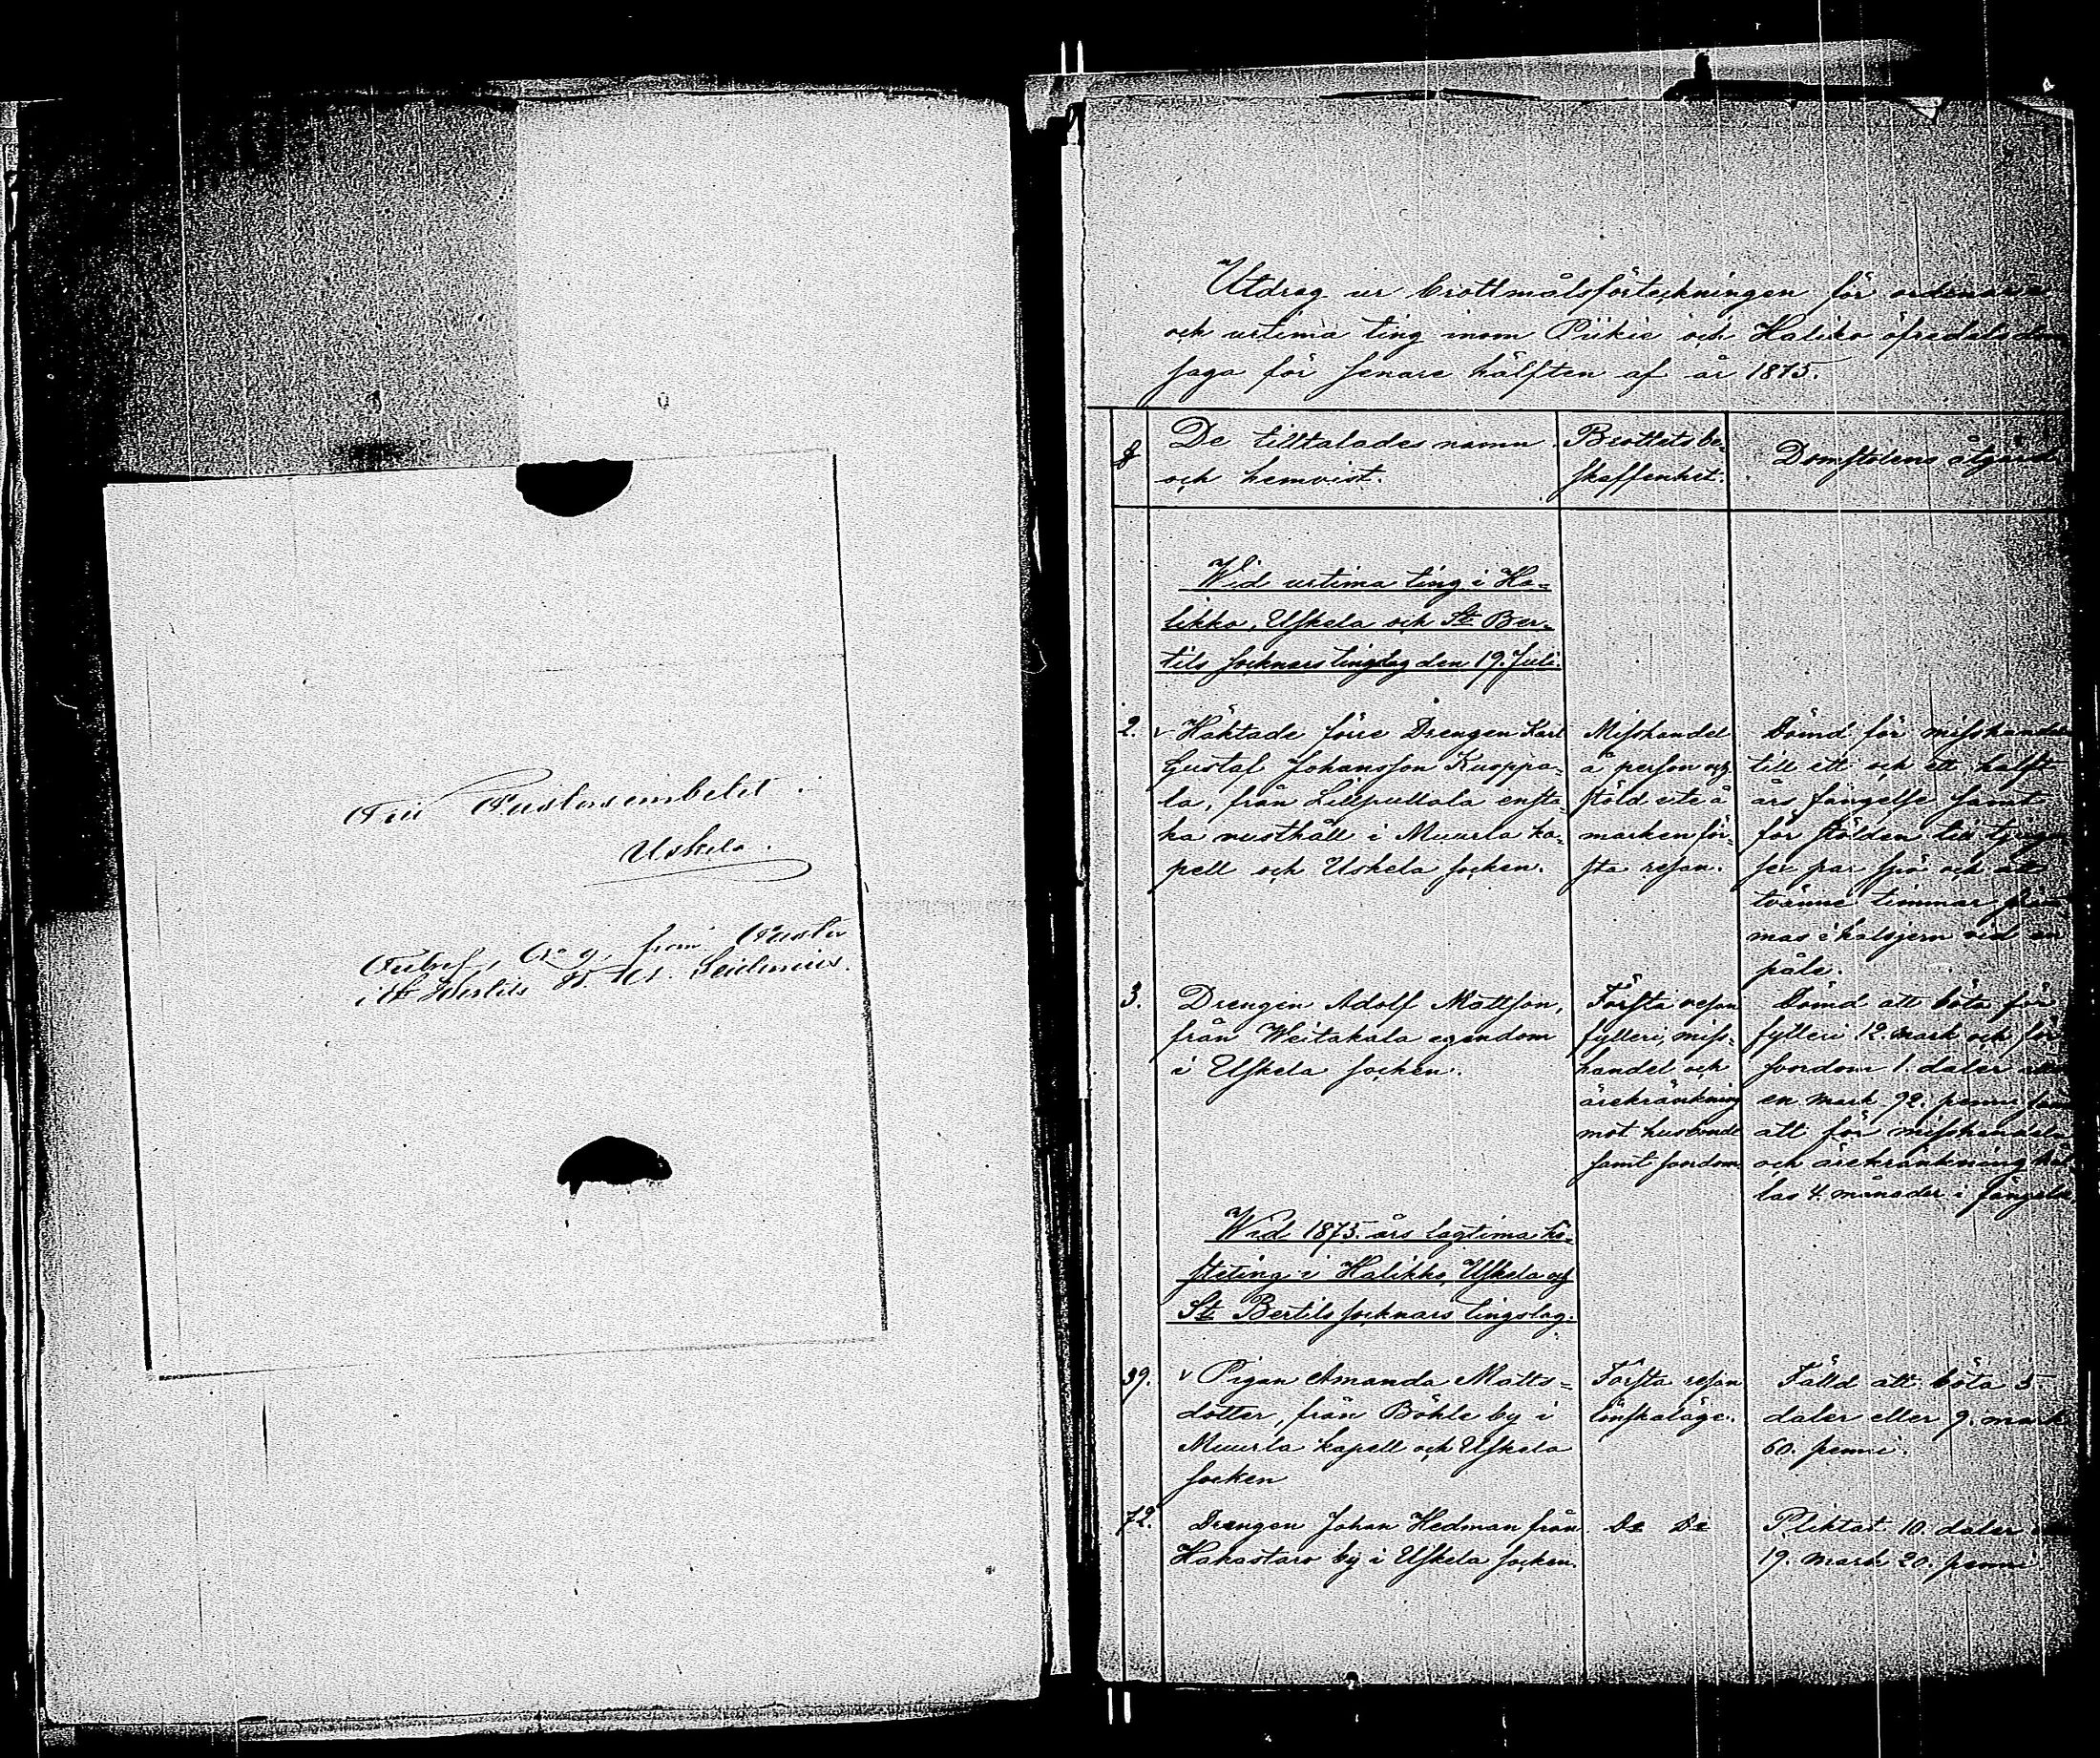 Till Pastorsembetet i
Uskela.
Tjebref, No 9, från Pastor
i St Bertils
Utdrag ur brottmålsförteckningen för ordinarie
och urtima ting inom Pikie och Haliko öfredels dom
saga för senare hälften af år 1875.
De tilltalades namn
och hemvist.
Brottets be-
skaffenhet.
Domstolens åtgärd
Wid urtima ting i Ha-
likko, Uskela och St Ber-
tils socknars tingslag den 19. Juli.
2. v Häktade förre Drengen Karl
Gustaf Johansson Kuoppa-
la, från Lillpullola ensta-
ka rusthåll i Muurla ka-
pell och Uskela socken.
Misshandel
å person och
stöld ute å
marken för-
sta resan.
Dömd för misshandel
till ett och ett halft
års fängelse samt
för stölden till tjugu
sex par spö och att
tvänne timmar
mas i halsjern vid en
påle.
3. Drengen Adolf Mattsson,
från Weitakala egendom
i Uskela socken.
Första resan
fylleri, miss-
handel och
ärekränkning
mot husbonde
samt svordom.
Dömd att böta för
fylleri 12. mark och för
svordom 1. daler
en mark 92. penni samt
att för misshandel
och ärekränkning hål
las 4. månader i fängelse.
Wid 1875. års lagtima hö-
steting i Halikko, Uskela och
St Bertils socknars tingslag.
39. v Pigan Amanda Matts-
dotter, från Böhle by i
Muurla kapell och Uskela
socken
Första resan
lönskaläge.
Fälld att böta 5
daler eller 9. mark
60. penni.
72. Drengen Johan Hedman från
Hakastaro by i Uskela socken.
Do Do
Pliktat 10. daler
19. mark 20. penni